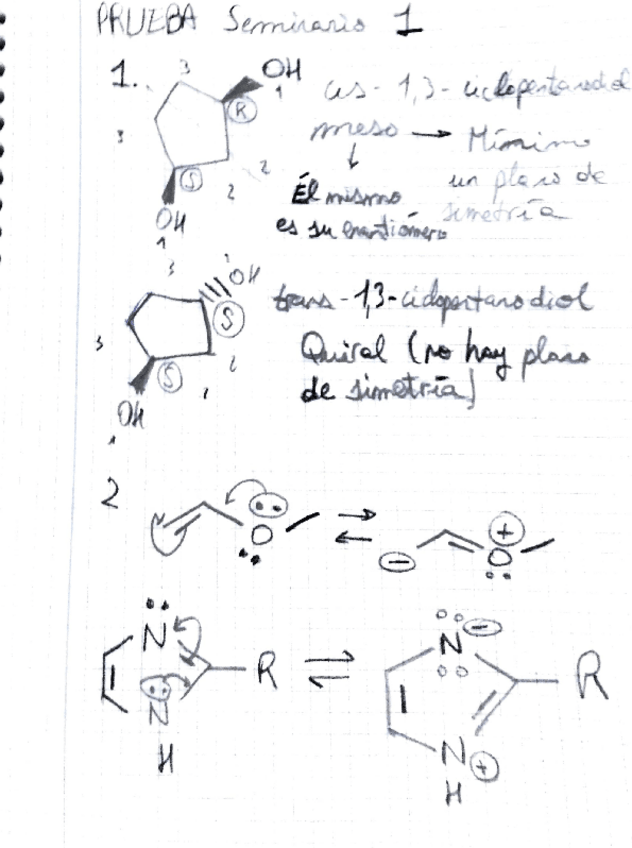 PRUEBA Seminario 1
1.
3
OH
1
R
cis - 1,3 - ciclopentanodiol
3
meso → Mínimo
S
2
2
un plano de
Él mismo
simetría
OH
es su enantiómero
1
3
1
OH
trans - 1,3 - ciclopentanodiol
S
3
Quiral (no hay plano
S
2
1
de simetría)
OH
1
2
O
+
O
−
N
N
−
R
R
N
N
+
H
H